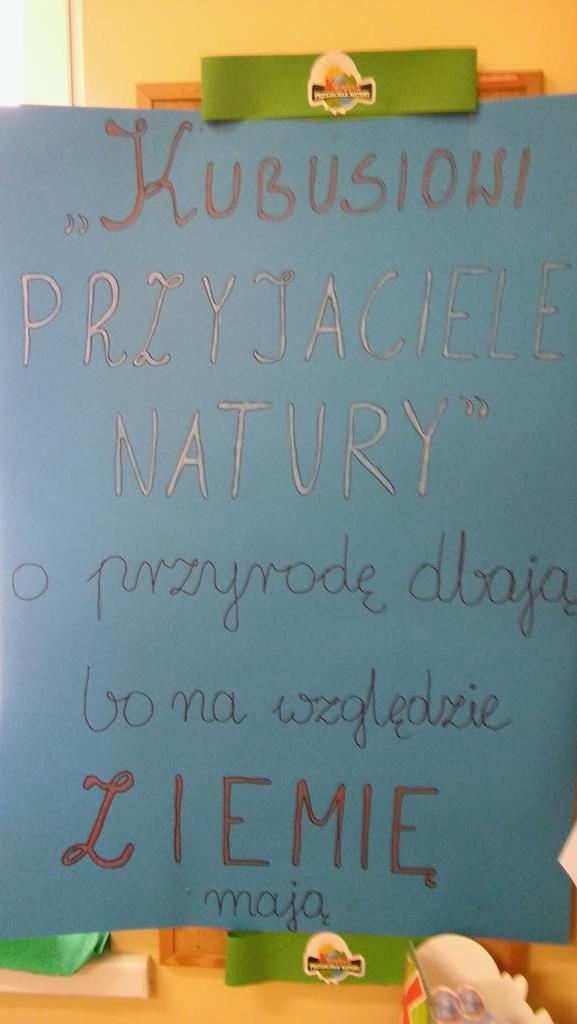 „KUBUSIOWI
PRZYJACIELE
NATURY”
o przyrodę dbają
bo na względzie
ZIEMIĘ
mają